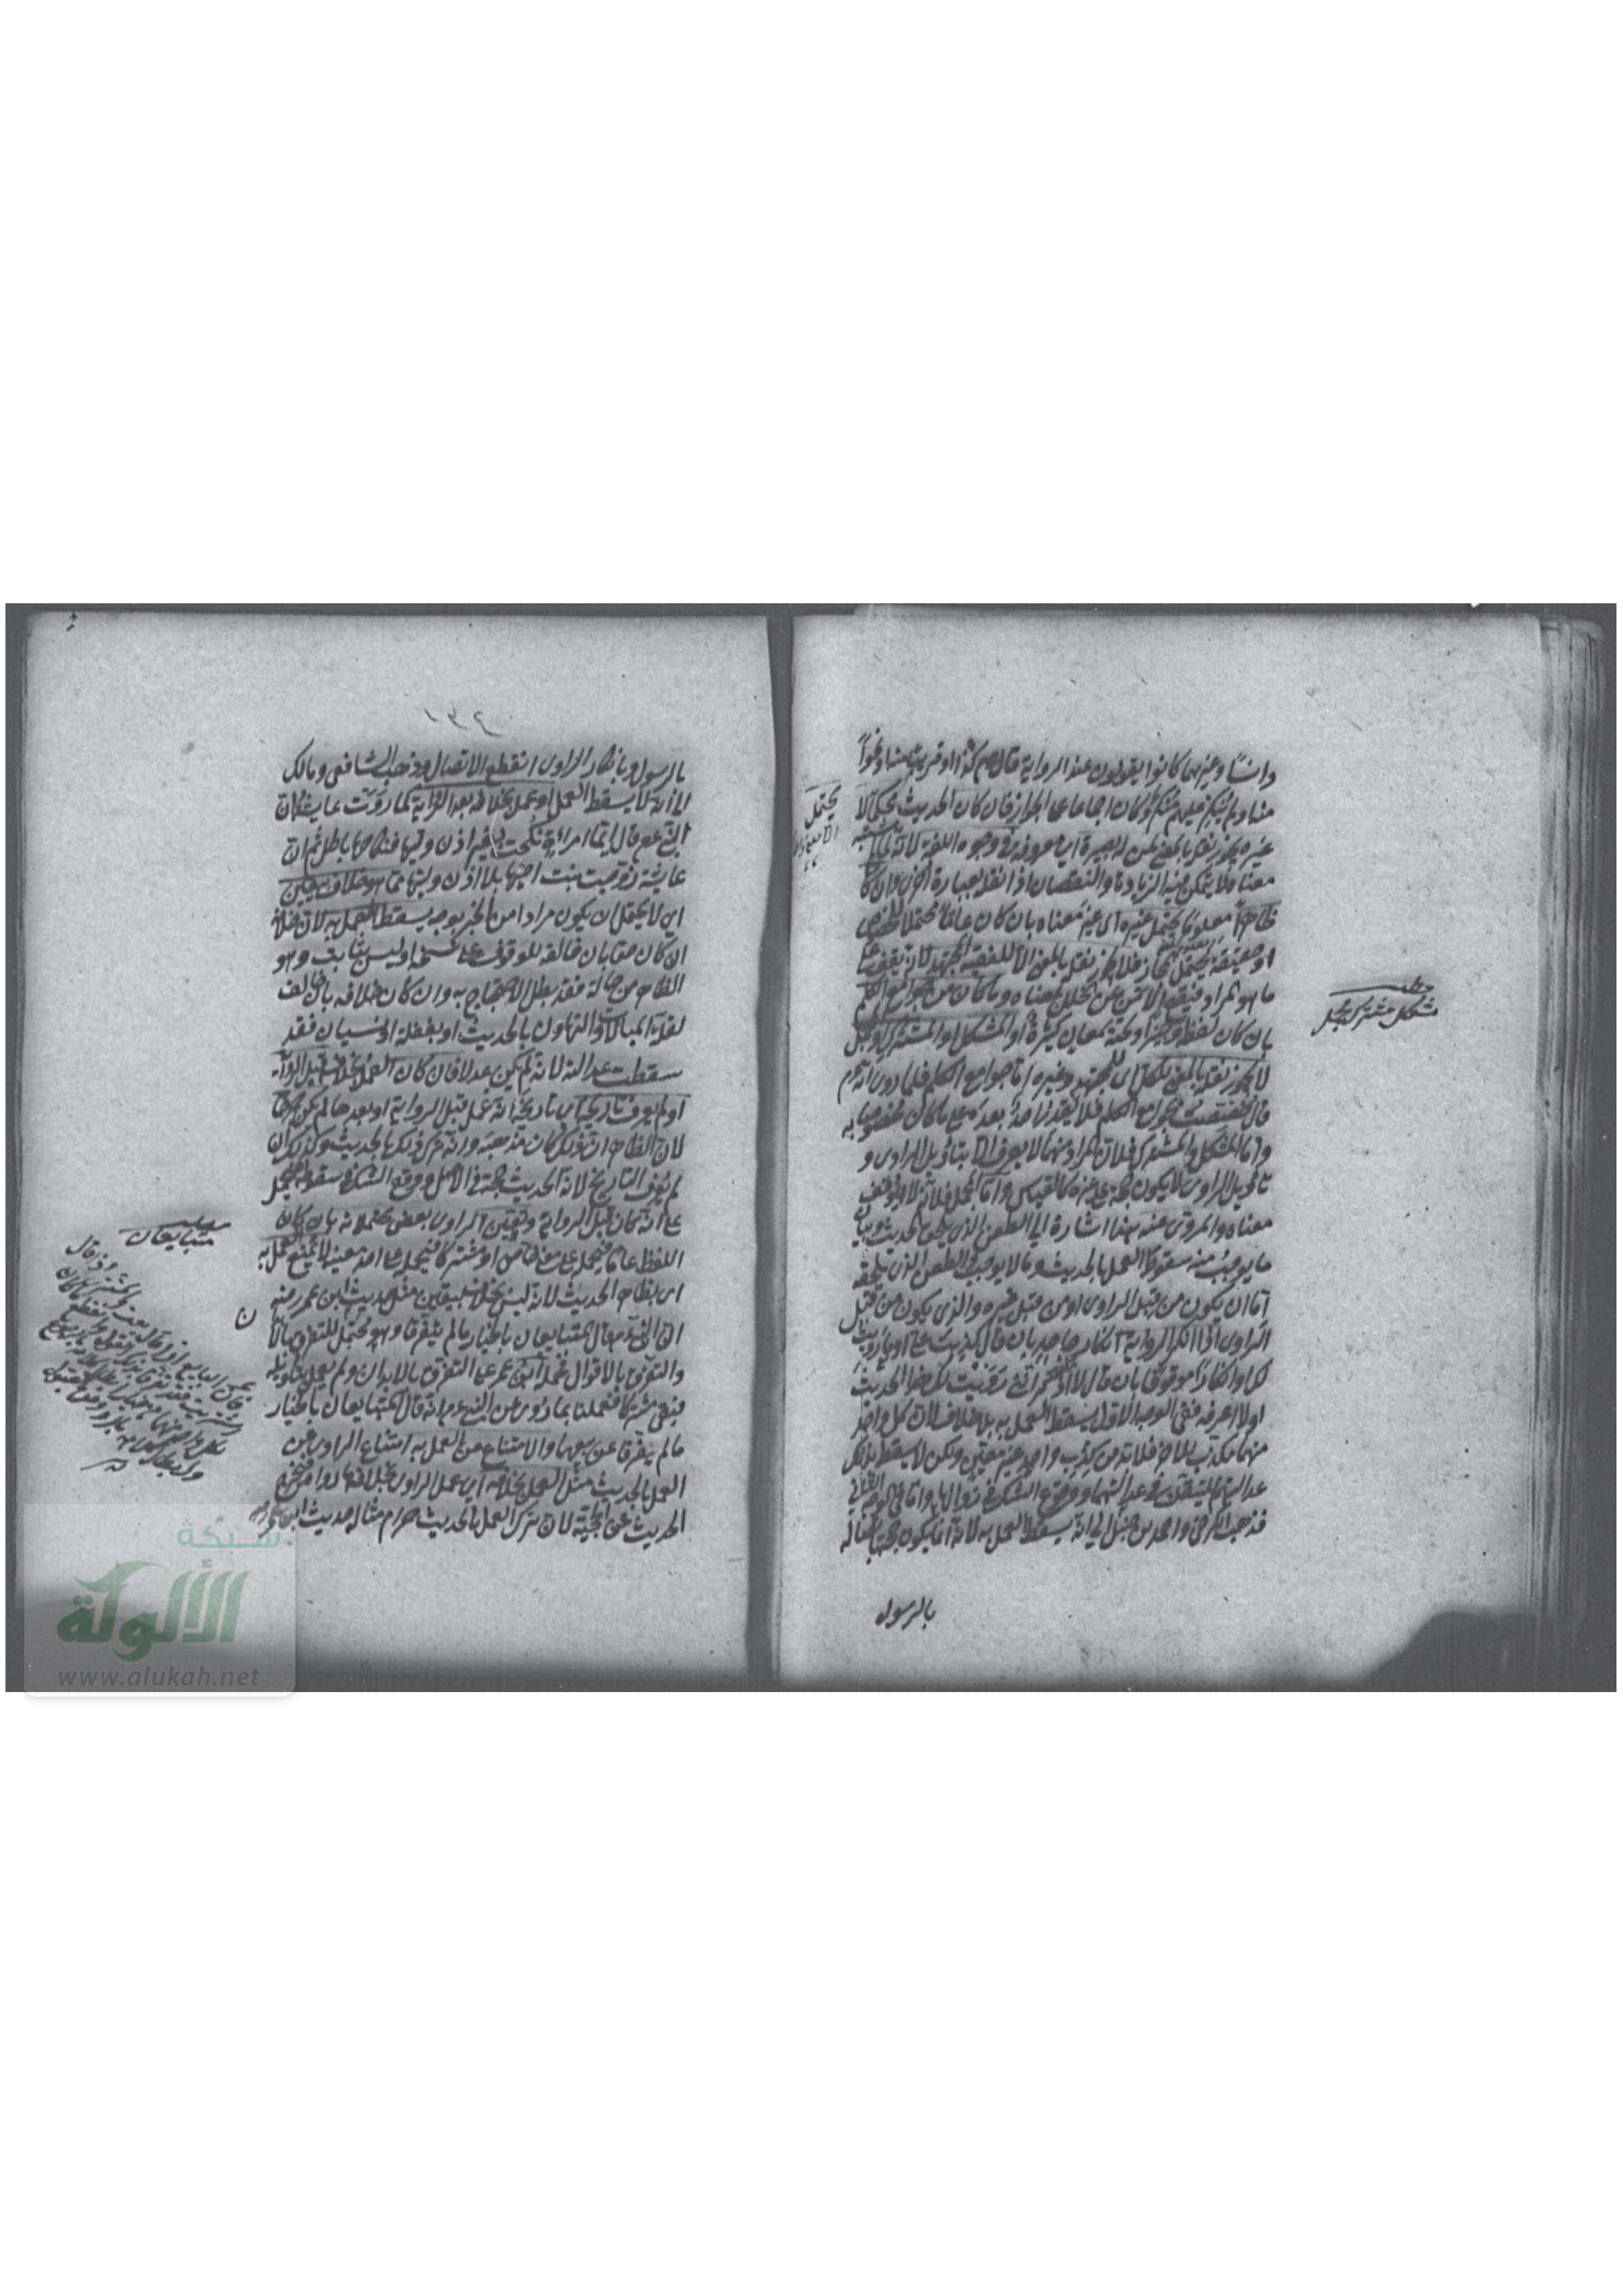 وانسًا وغيرهما كانوا يقولون عند الرواية قال عم كذا او قريبا منه او نحوًا
منه ولم ينكر عليهم منكر وكان اجماعا على الجواز فان كان الحديث محكمًا لا
يحتمل
غيره يجوز نقله بالمعنى لمن له بصيرة اي معرفة في وجوه اللغة لانه لما لم يشتبه
معناه لا يتمكن فيه الزيادة والنقصان اذا نقله بعبارة اخرى وان كان
ظاهرًا معلومًا يحتمل غيره اى غير معناه بان كان عامًا محتملا للخصوص
او حقيقة تحتمل المجاز فلا يجوز نقله بالمعنى الا للفقيه المجتهد لانه يقف على
ما هو المراد فيقع الامن عن الخلل بمعناه وما كان من جوامع الكلم
بان كان لفظه وجيزًا وتحته معان كثيرة أو المشكل او المشترك او المجمل
لا يجوز نقله بالمعنى للكل اى للمجتهد وغيره اما جوامع الكلم فلما روى انه عم
قال خصصت بجوامع الكلم فلا يقدر احد بعده على ما كان مخصوصا به
واما المشكل والمشترك فلان المراد منهما لا يعرف الا بتأويل الراوى و
تأويل الراوى لا يكون حجة على غيره كالقياس واما المجمل فلانه لا يوقف
معناه والمروى عنه هذا اشارة الى الطعن الذى يلحق الحديث وبيان
ما يوجب منه سقوط العمل بالحديث وما لا يوجب والطعن الذى يلحقه
اما ان يكون من قبل الراوى او من قبل غيره والذى يكون من قبل
الراوى اذا انكر الرواية انكار جاحد بان قال كذبت على او ما رويت
لك او انكارًا موقوفًا بان قال لا اذكر انى رويت لك هذا الحديث
او لا اعرفه ففى الوجه الاول يسقط العمل به بلا خلاف لان كل واحد
منهما مكذب للاخر فلا بد من كذب واحد غير معين ولكن لا يسقط بذلك
عدالتهما للتيقن في عدالتهما ووقوع الشك في زوالها واما في الوجه الثاني
فذهب الكرخى واحمد بن حنبل الى انه يسقط العمل به لانه انما يكون حجة باتصاله
بالرسول
مطلب
مشكل مشترك مجمل
١٣٤
بالرسول وبانكار الراوى انقطع الاتصال وذهب الشافعى ومالك
الى انه لا يسقط العمل او عمل بخلافه بعد الرواية كما روت عايشة ان
النبى عم قال ايما امرأة نكحت بغير اذن وليها فنكاحها باطل ثم ان
عايشة زوجت بنت اخيها بلا اذن وليها مما هو خلاف بيقين
اى لا يحتمل ان يكون مرادا من الخبر بوجه يسقط العمل به لان خلافه
ان كان حقا بان خالفه للوقوف على نسخه او ليس بثابت وهو
الظاهر من حاله فقد بطل الاحتجاج به وان كان خلافه بان خالف
لقلة المبالات والتهاون بالحديث او بغفلة او نسيان فقد
سقطت عدالته لانه لم يكن عدلا فان كان العمل بخلافه قبل الرواية
او لم يعرف تاريخه اى تاريخ انه عمل قبل الرواية او بعدها لم يكن جرحا
لان الظاهر ان ذلك كان مذهبه وانه ترك ذلك بالحديث وكذلك ان
لم يعرف التاريخ لان الحديث حجة فى الاصل ووقع الشك فى سقوطه فيحمل
على انه كان قبل الرواية وتعيين الراوى بعض محتملاته بان كان
اللفظ عاما فيحمل على معنى خاص او مشتركا فيحمله على احد معنييه لا يمنع العمل به
اى بظاهر الحديث لانه ليس بخلاف بيقين مثل حديث ابن عمر رضى
ان النبى عم قال المتبايعان بالخيار ما لم يتفرقا وهو محتمل للتفرق بالابدان
والتفرق بالاقوال فحمله ابن عمر على التفرق بالابدان ولم يعمل بتأويله
فبقى مشتركا فعملنا بما روى عن النبى عم انه قال المتبايعان بالخيار
ما لم يتفرقا عن بيعهما والامتناع عن العمل به امتناع الراوى عن
العمل بالحديث مثل العمل بخلافه اى عمل الراوى بخلاف ما رواه فيخرج
الحديث عن الحجية لان ترك العمل بالحديث حرام مثاله حديث ابن عمر
مطلب
متبايعان